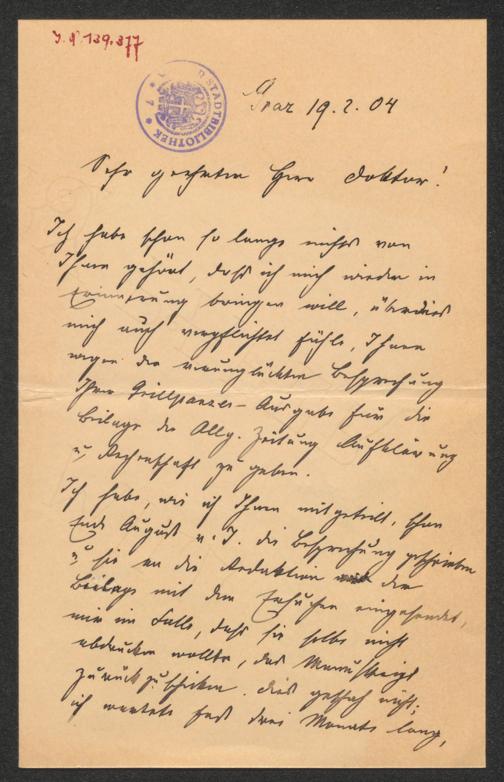 J. N. 139.377
STADTBIBLIOTHEK
Graz 19.2.04
Sehr geehrter Herr Doktor!
Ich habe schon so lange nichts von
Ihnen gehört, daß ich mich wieder in
Erinnerung bringen will, überdies
mich auch verpflichtet fühle, Ihnen
wegen der verunglückten Besprechung
Ihrer Grillparzer-Ausgabe für die
Beilage der Allg. Zeitung Aufklärung
u. Rechenschaft zu geben.
Ich habe, wie ich Ihnen mitgeteilt, schon
Ende August v. J. die Besprechung geschrieben
u. sie an die Redaktion der
Beilage mit dem Ersuchen eingesendet,
mir im Falle, daß sie selbe nicht
abdrucken wollte, das Manuskript
zurückzuschicken. Dies geschah nicht;
ich wartete fast drei Monate lang,